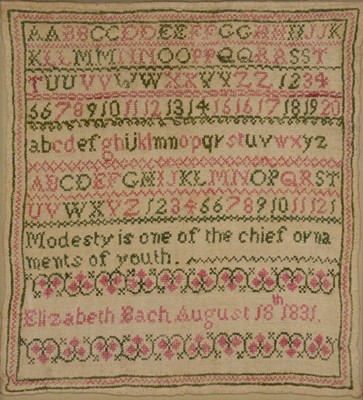 AABBCCDDEEFFGGHHIJJK
KLLMMNNOOPPQQRRSST
TUUVVWWXXYYZZ 1234
66789101112131416161718192​0
abcdefghijklmnopqrstuvwxyz
ABCDEFGHIJKLMNOPQRST
UVWXYZ123466789101112 1
Modesty is one of the chief orna
ments of youth.
Elizabeth Bach August 18th 1831.